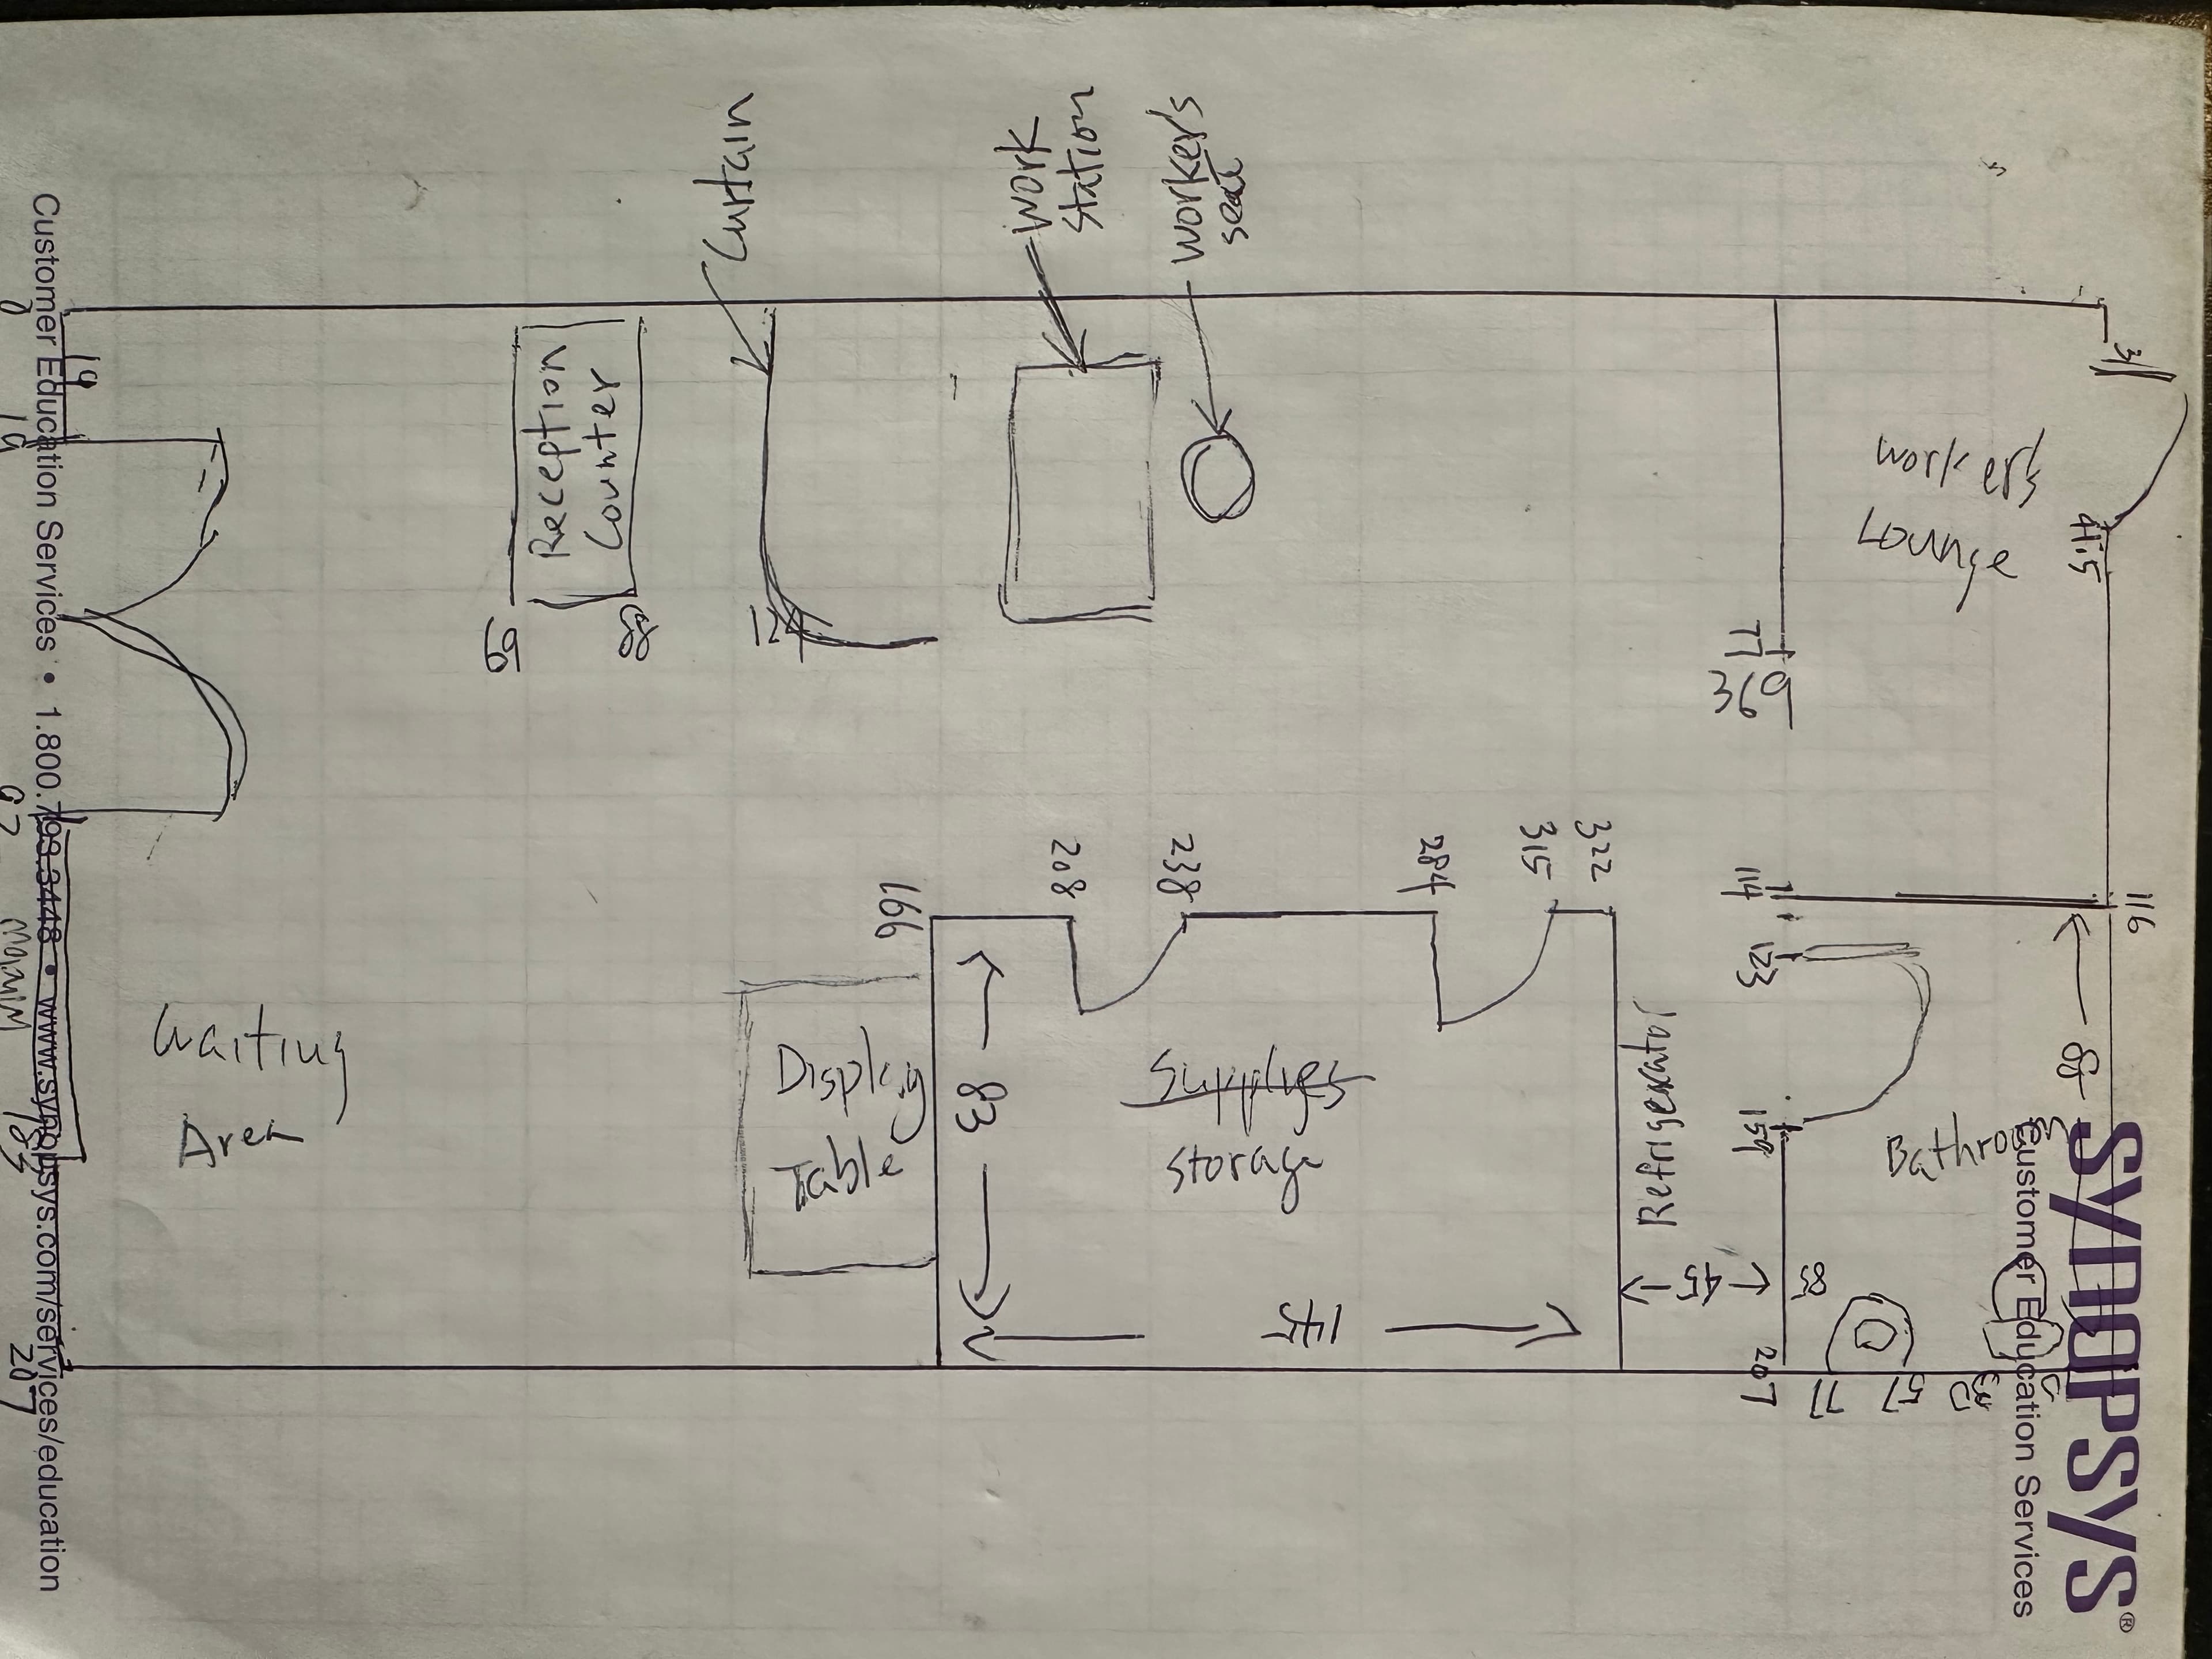 SYNOPSYS®
Customer Education Services
Curtain
Work
station
workers
seat
Reception
Counter
69
88
124
workers
Lounge
31
41.5
77
369
166
208
238
284
315
322
114
116
123
159
85
207
77
57
Display
Table
83
Supplyes
storage
Refrigerator
45
85
Bathroom
Waiting
Area
0
19
19
183
207
Customer Education Services • 1.800.793.3448 • www.synopsys.com/services/education